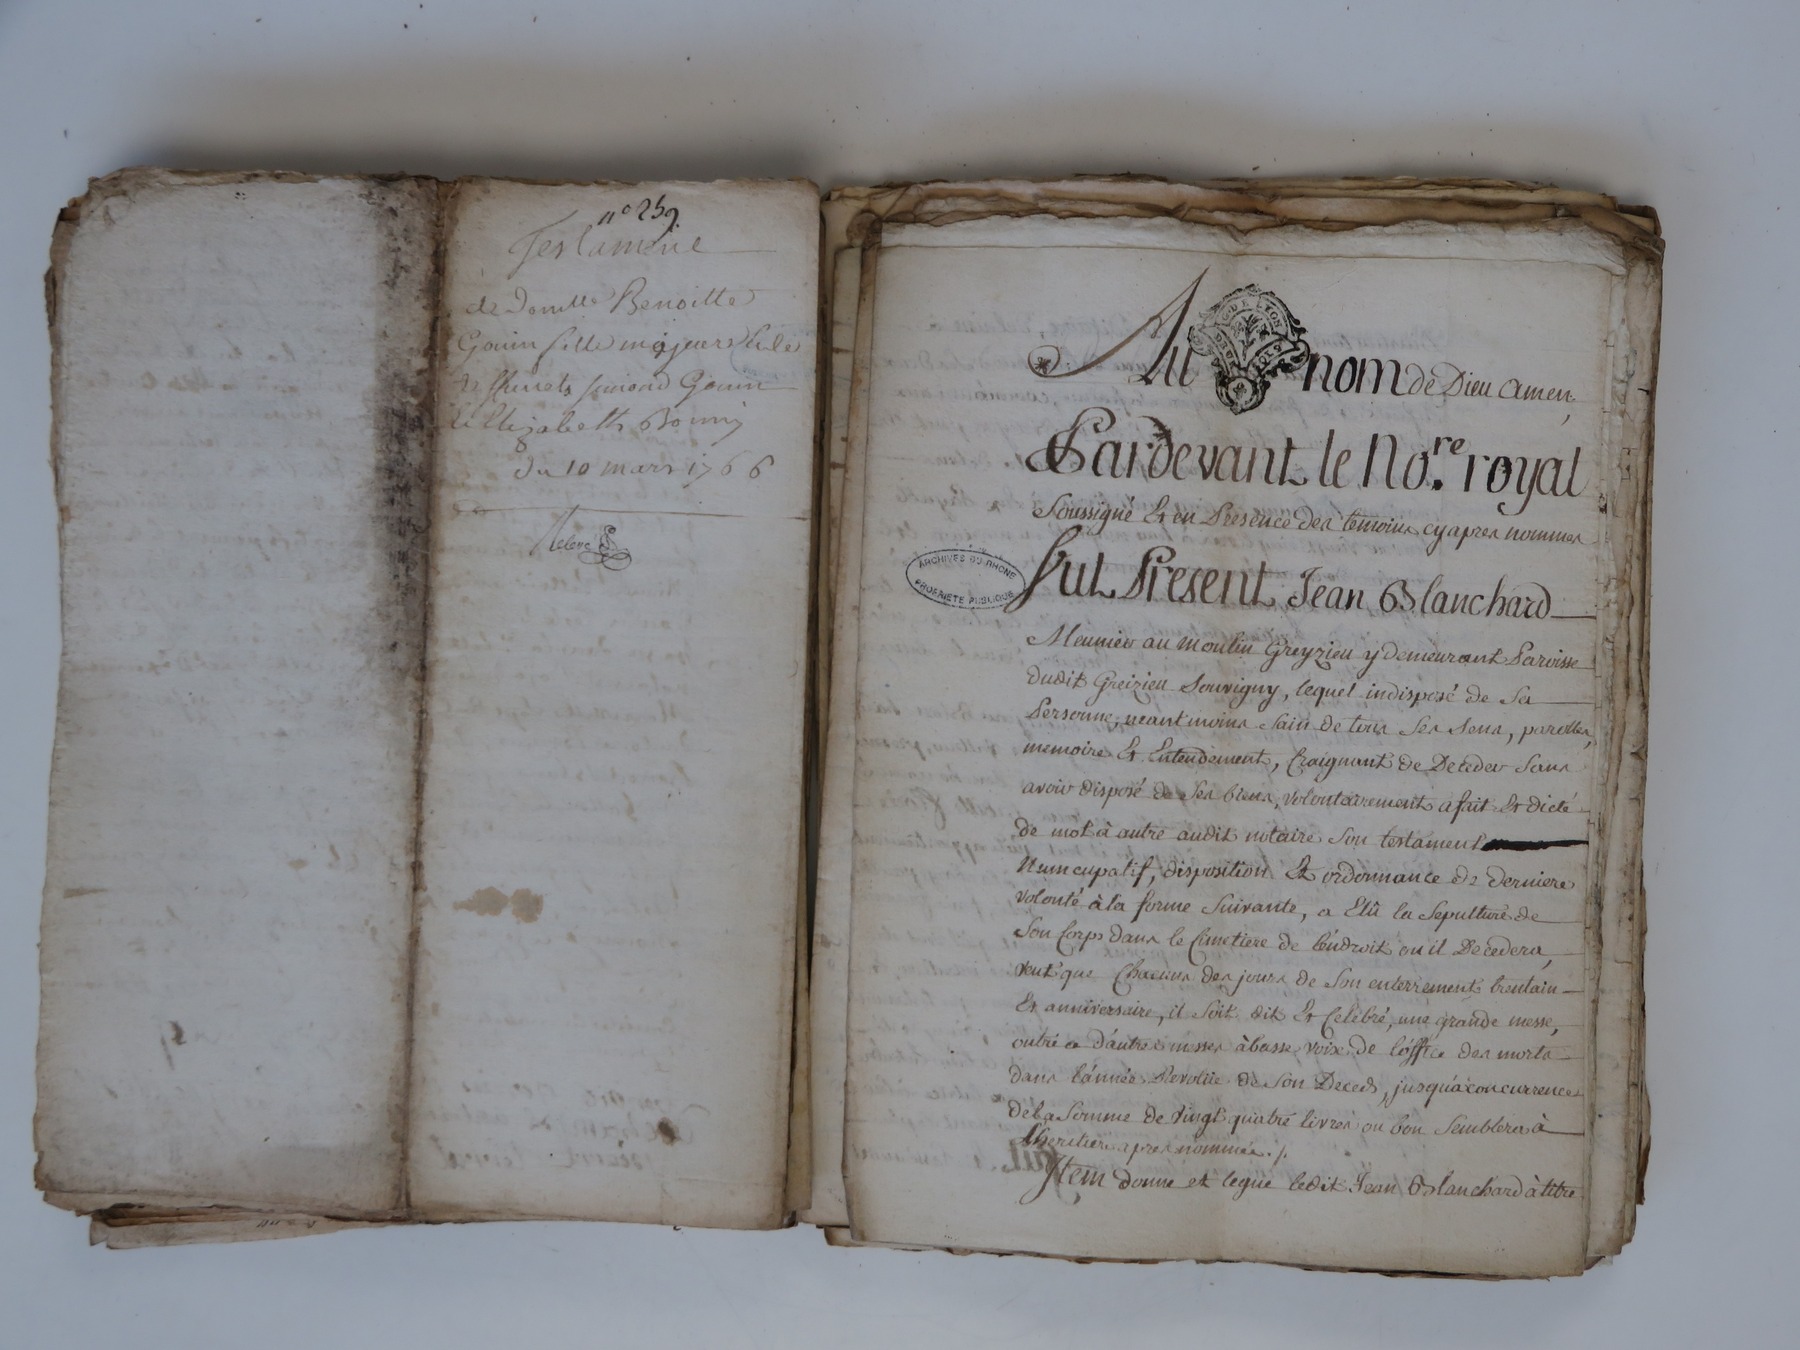 n° 259
Testament
de Dom.lle Benoitte
Gonin fille majeure
Gonin
Elizabeth
du 10 mars 1766
Au nom de Dieu amen,
G. DE LYON
Pardevant le No.re royal
Soussigné Et en Presence des temoins cyapres nommes
ARCHIVES DU RHONE
PROPRIETE PUBLIQUE
fut Present Jean Blanchard
Meunier au moulin Greyzieu y demeurant Paroisse
dudit Greizieu Souvigny, lequel indisposé de Sa
Personne, neantmoins Sain de tous Ses Sens, parolles,
memoire Et Entendement, Craignant de Deceder Sans
avoir disposé de Ses biens, volontairement a fait Et dicté
de mot à autre audit notaire Son testament
Nuncupatif, disposition Et ordonnance de derniere
volonté à la forme Suivante, a Elû la Sepulture de
Son Corps dans le Cimetiere de l'éndroit ou il Decedera,
veut que Chacuns des jours de Son enterrement trentain
Et anniversaire, il Soit dit Et Celebré, une grande messe,
outre ce d'autres messes à basse voix de l'óffice des morts
dans l'ánnée Revolüe de Son Deceds, jusqu'a concurrence
de La Somme de vingt quatre livres ou bon Semblera à
L'heritier apres nommée ./.
Jtem donne et legue ledit Jean Blanchard à titre